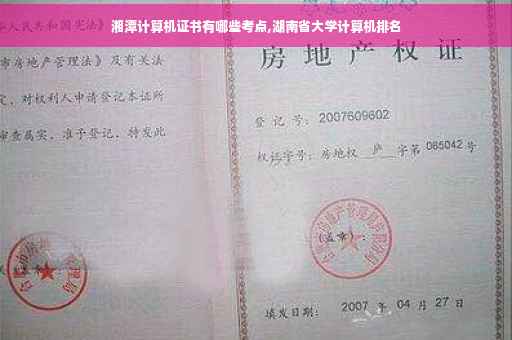 湘潭计算机证书有哪些考点,湖南省大学计算机排名
人民共和国宪法》
市房地产管理法》及有关法
定,对权利人申请登记本证所
审查属实,准予登记,特发此
房地产权证
登记号: 2007609602
权证字号: 房地权 庐 字第 085042 号
(盖章):
填发日期: 2007 年 04 月 27 日